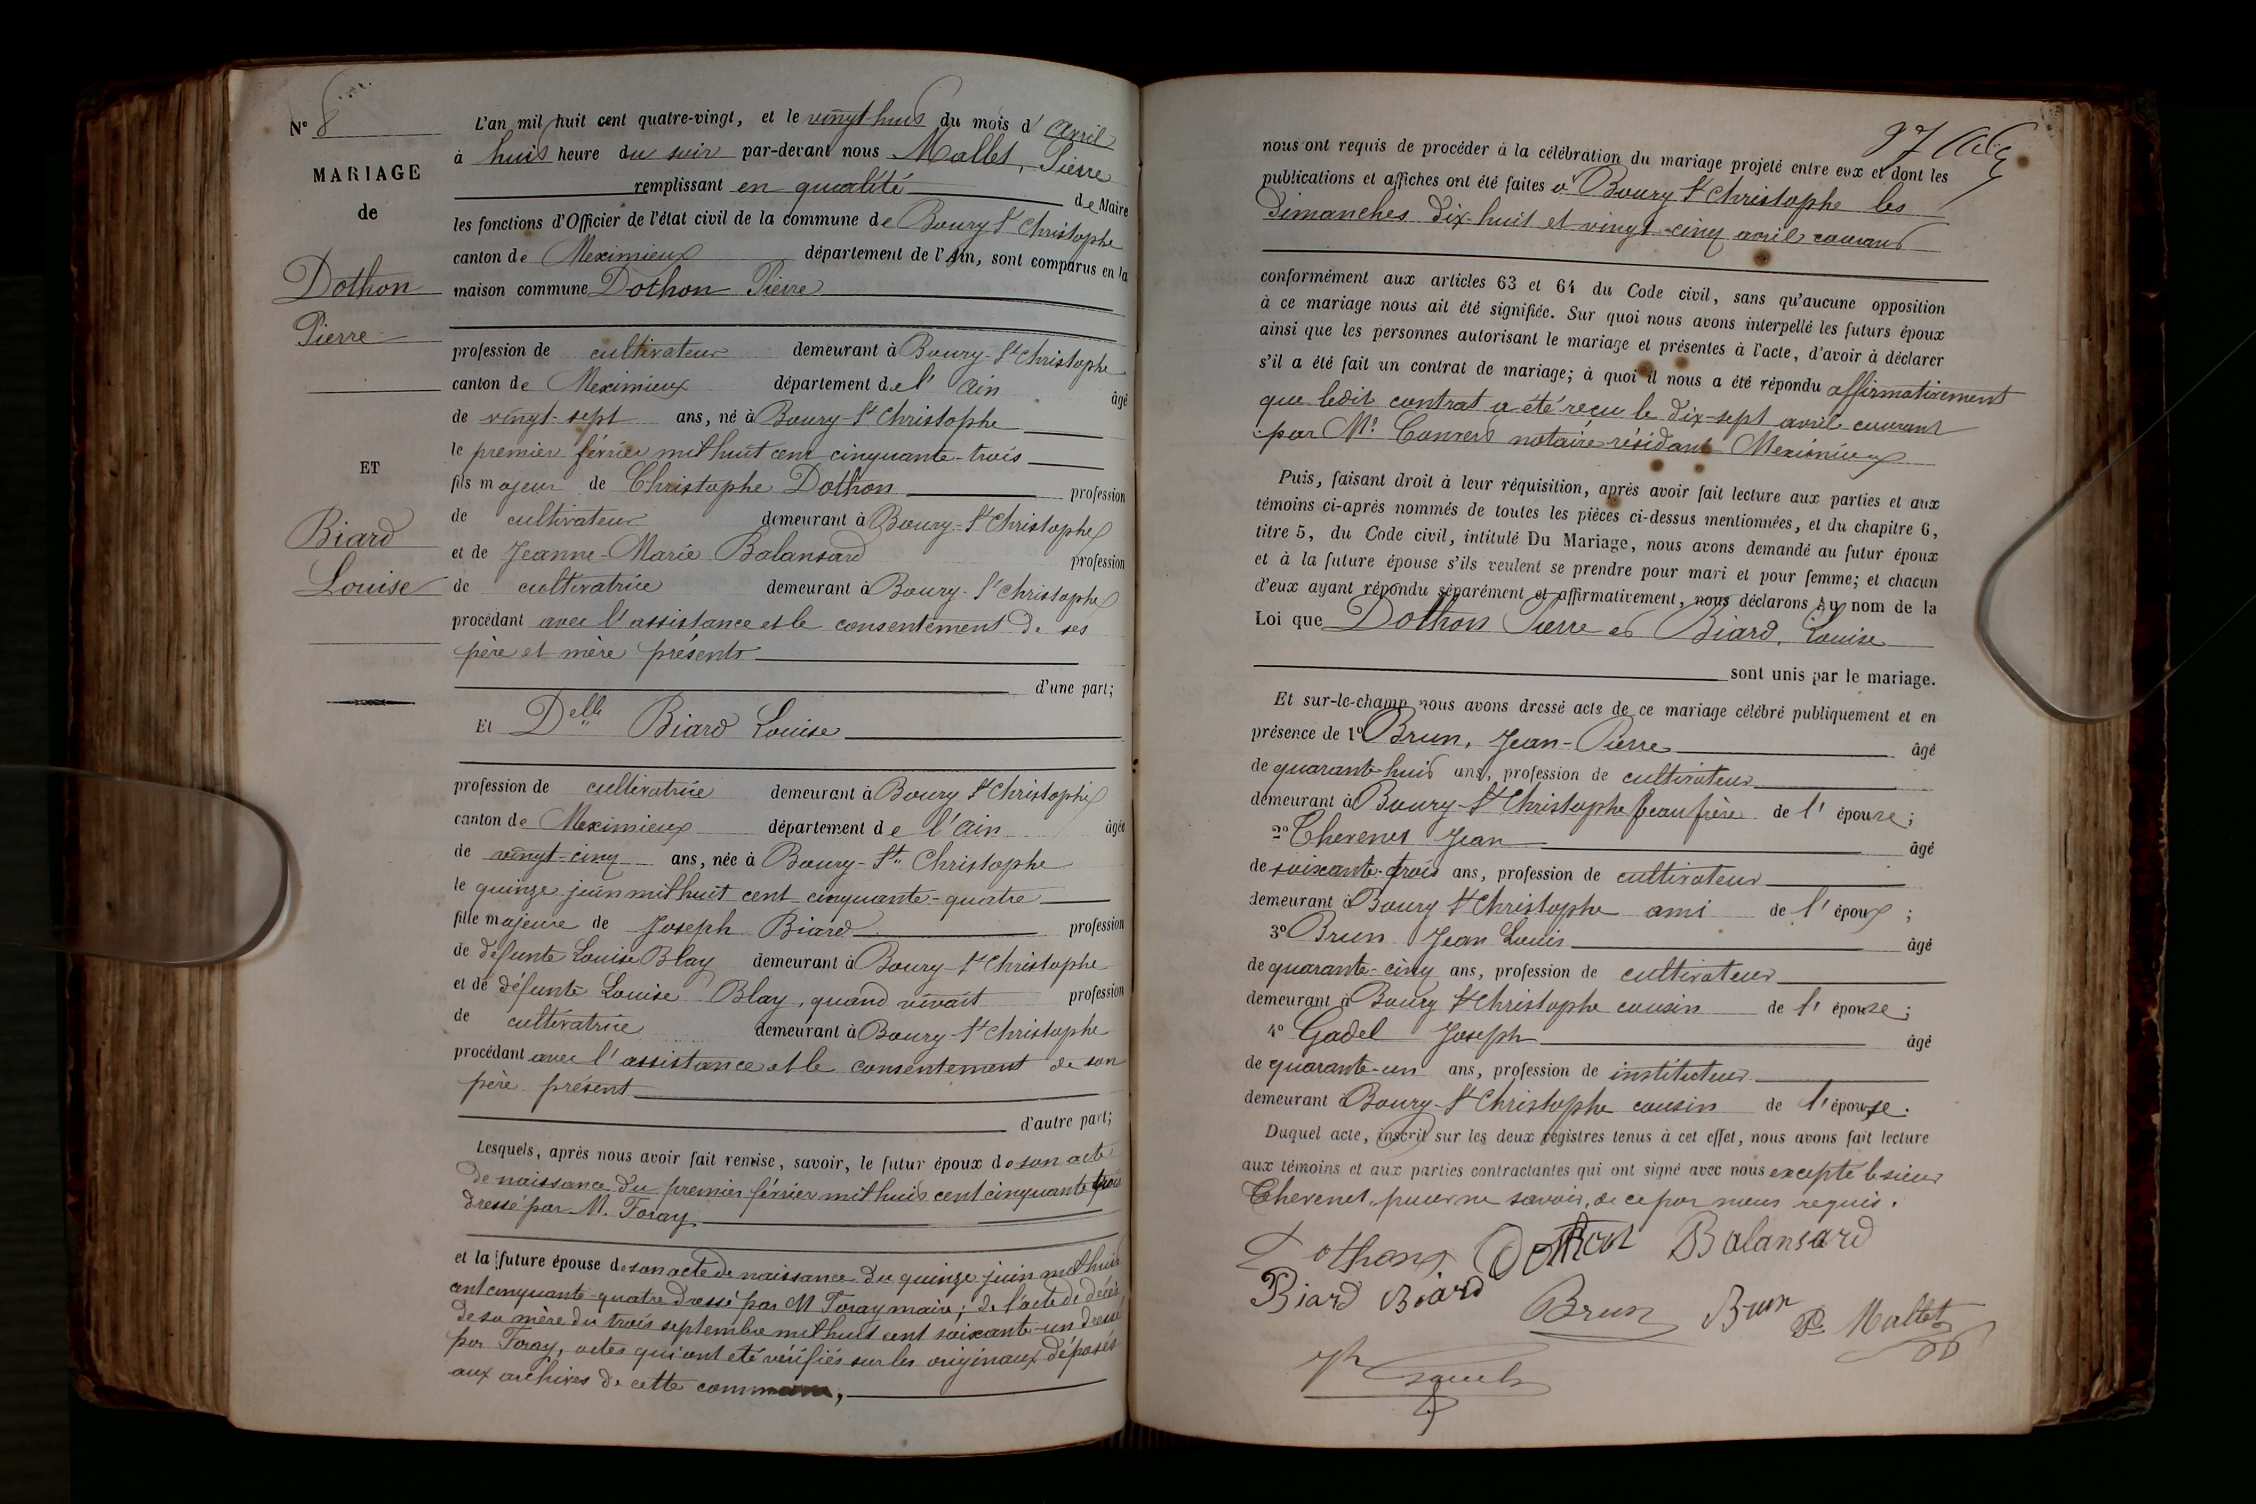 N° 8
MARIAGE
de
Dothon
Pierre
ET
Biard
Louise
L'an mil huit cent quatre-vingt, et le vingt huit du mois d'avril
à huit heure du soir par-devant nous Mallet, Pierre
remplissant en qualité de Maire
les fonctions d'Officier de l'état civil de la commune de Boury St Christophe
canton de Meximieux département de l'Ain, sont comparus en la
maison commune Dothon Pierre
profession de cultivateur demeurant à Boury-St Christophe
canton de Meximieux département de l' Ain âgé
de vingt-sept ans, né à Boury-St Christophe
le premier février mil huit cent cinquante-trois
fils majeur de Christophe Dothon profession
de cultivateur demeurant à Boury-St Christophe
et de Jeanne-Marie Balansard profession
de cultivatrice demeurant à Boury-St Christophe
procédant avec l'assistance et le consentement de ses
père et mère présents
d'une part;
Et Delle Biard Louise
profession de cultivatrice demeurant à Boury St Christophe
canton de Meximieux département de l'Ain âgée
de vingt-cinq ans, née à Boury-St Christophe
le quinze juin mil huit cent cinquante-quatre
fille majeure de Joseph Biard profession
de défunte Louise Blay demeurant à Boury-St Christophe
et de défunte Louise Blay, quand vivait profession
de cultivatrice demeurant à Boury-St Christophe
procédant avec l'assistance et le consentement de son
père présent
d'autre part;
Lesquels, après nous avoir fait remise, savoir, le futur époux de son acte
de naissance du premier février mil huit cent cinquante trois
dressé par M. Foray
et la future épouse de son acte de naissance du quinze juin mil huit
cent cinquante-quatre dressé par M Foray maire; de l'acte de décès
de sa mère du trois septembre mil huit cent soixante-un dressé
par Foray, actes qui ont été vérifiés sur les originaux déposés
aux archives de cette commune,
nous ont requis de procéder à la célébration du mariage projeté entre eux et dont les
publications et affiches ont été faites à Boury St Christophe les
dimanches dix-huit et vingt-cinq avril courant
conformément aux articles 63 et 64 du Code civil, sans qu'aucune opposition
à ce mariage nous ait été signifiée. Sur quoi nous avons interpellé les futurs époux
ainsi que les personnes autorisant le mariage et présentes à l'acte, d'avoir à déclarer
s'il a été fait un contrat de mariage; à quoi il nous a été répondu affirmativement
que ledit contrat a été reçu le dix-sept avril courant
par Me notaire résidant Meximieux
Puis, faisant droit à leur réquisition, après avoir fait lecture aux parties et aux
témoins ci-après nommés de toutes les pièces ci-dessus mentionnées, et du chapitre 6,
titre 5, du Code civil, intitulé Du Mariage, nous avons demandé au futur époux
et à la future épouse s'ils veulent se prendre pour mari et pour femme; et chacun
d'eux ayant répondu séparément et affirmativement, nous déclarons au nom de la
Loi que Dothon Pierre et Biard, Louise
sont unis par le mariage.
Et sur-le-champ nous avons dressé acte de ce mariage célébré publiquement et en
présence de 1° Brun, Jean-Pierre âgé
de quarante huit ans, profession de cultivateur
demeurant à Boury-St Christophe beau frère de l' épouse;
2° Thevenet Jean âgé
de soixante-trois ans, profession de cultivateur
demeurant à Boury St Christophe ami de l' époux;
3° Brun Jean Louis âgé
de quarante-cinq ans, profession de cultivateur
demeurant à Boury St Christophe cousin de l' épouse;
4° Gadel Joseph âgé
de quarante-un ans, profession de instituteur
demeurant à Boury-St Christophe cousin de l'épouse.
Duquel acte, inscrit sur les deux registres tenus à cet effet, nous avons fait lecture
aux témoins et aux parties contractantes qui ont signé avec nous excepté le sieur
Thevenet, pour ne savoir, de ce par nous requis.
Dothon Dothon Balansard
Biard Biard Brun Brun P. Mallet